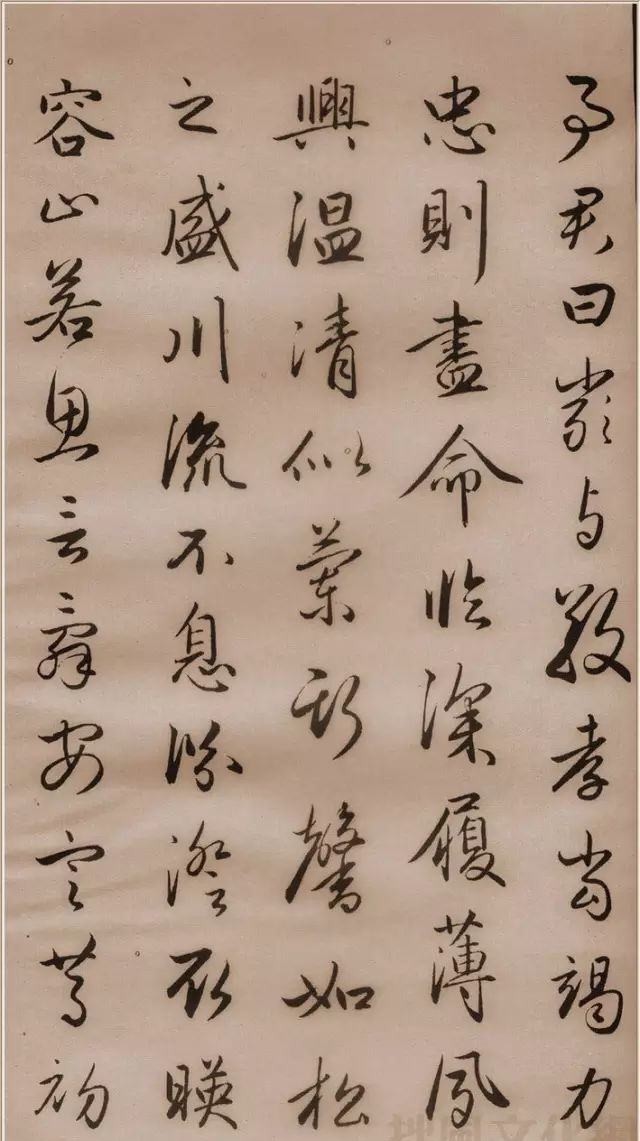 事君曰嚴与敬孝當竭力
忠則盡命臨深履薄夙
興温清似蘭斯馨如松
之盛川流不息淵澄取暎
容止若思言辭安定篤初